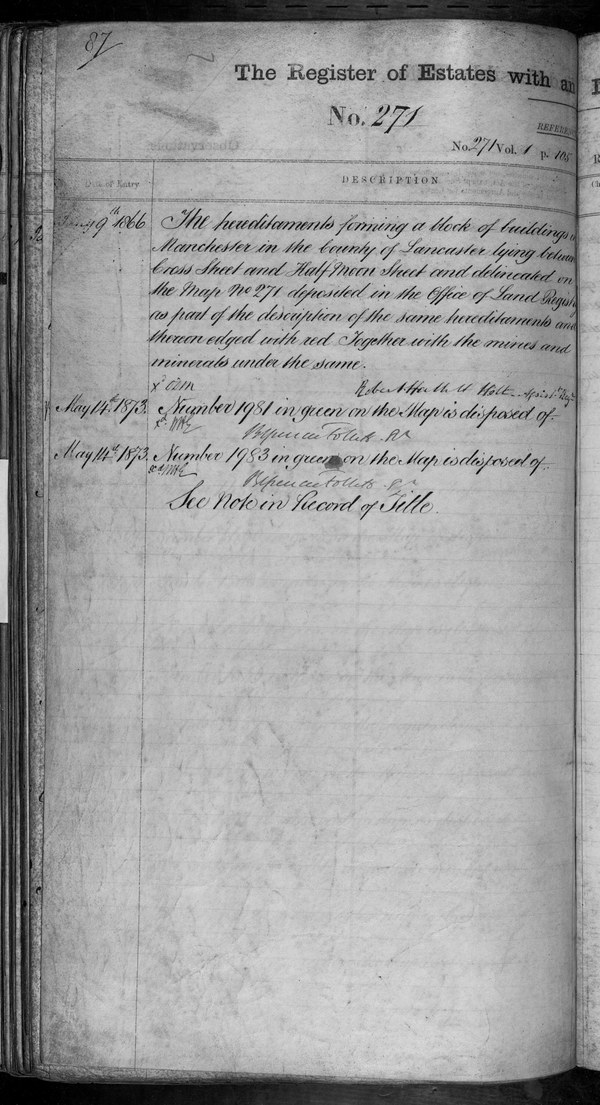 87
The Register of Estates with an
No. 271
REFEREN
No. 271 Vol. 1 p. 105
Date of Entry
DESCRIPTION
Jany 9th 1866
The hereditaments forming a block of buildings
Manchester in the County of Lancaster lying between
Cross Street and Half Moon Street and delineated on
the Map No 271 deposited in the Office of Land Registry
as part of the description of the same hereditaments and
thereon edged with red Together with the mines and
minerals under the same.
Holt
May 14th 1873. Number 1981 in green on the Map is disposed of.
Follett
May 14th 1873. Number 1983 in green on the Map is disposed of.
Follett
See Note in Record of Title.